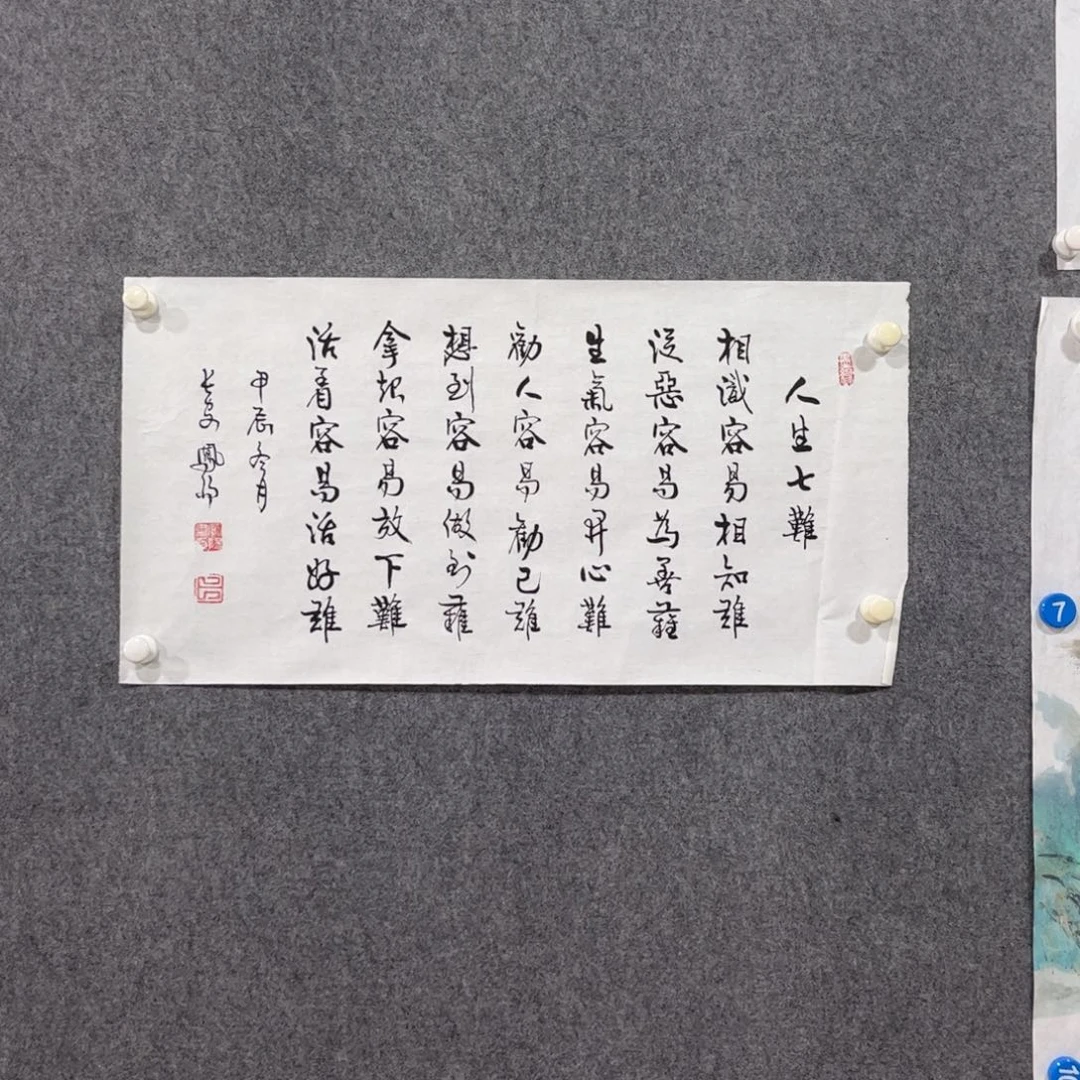 人生七難
相識容易相知難
從惡容易為善難
生氣容易開心難
勸人容易勸己難
想到容易做到難
拿起容易放下難
活着容易活好難
甲辰冬月
鳳
7
10